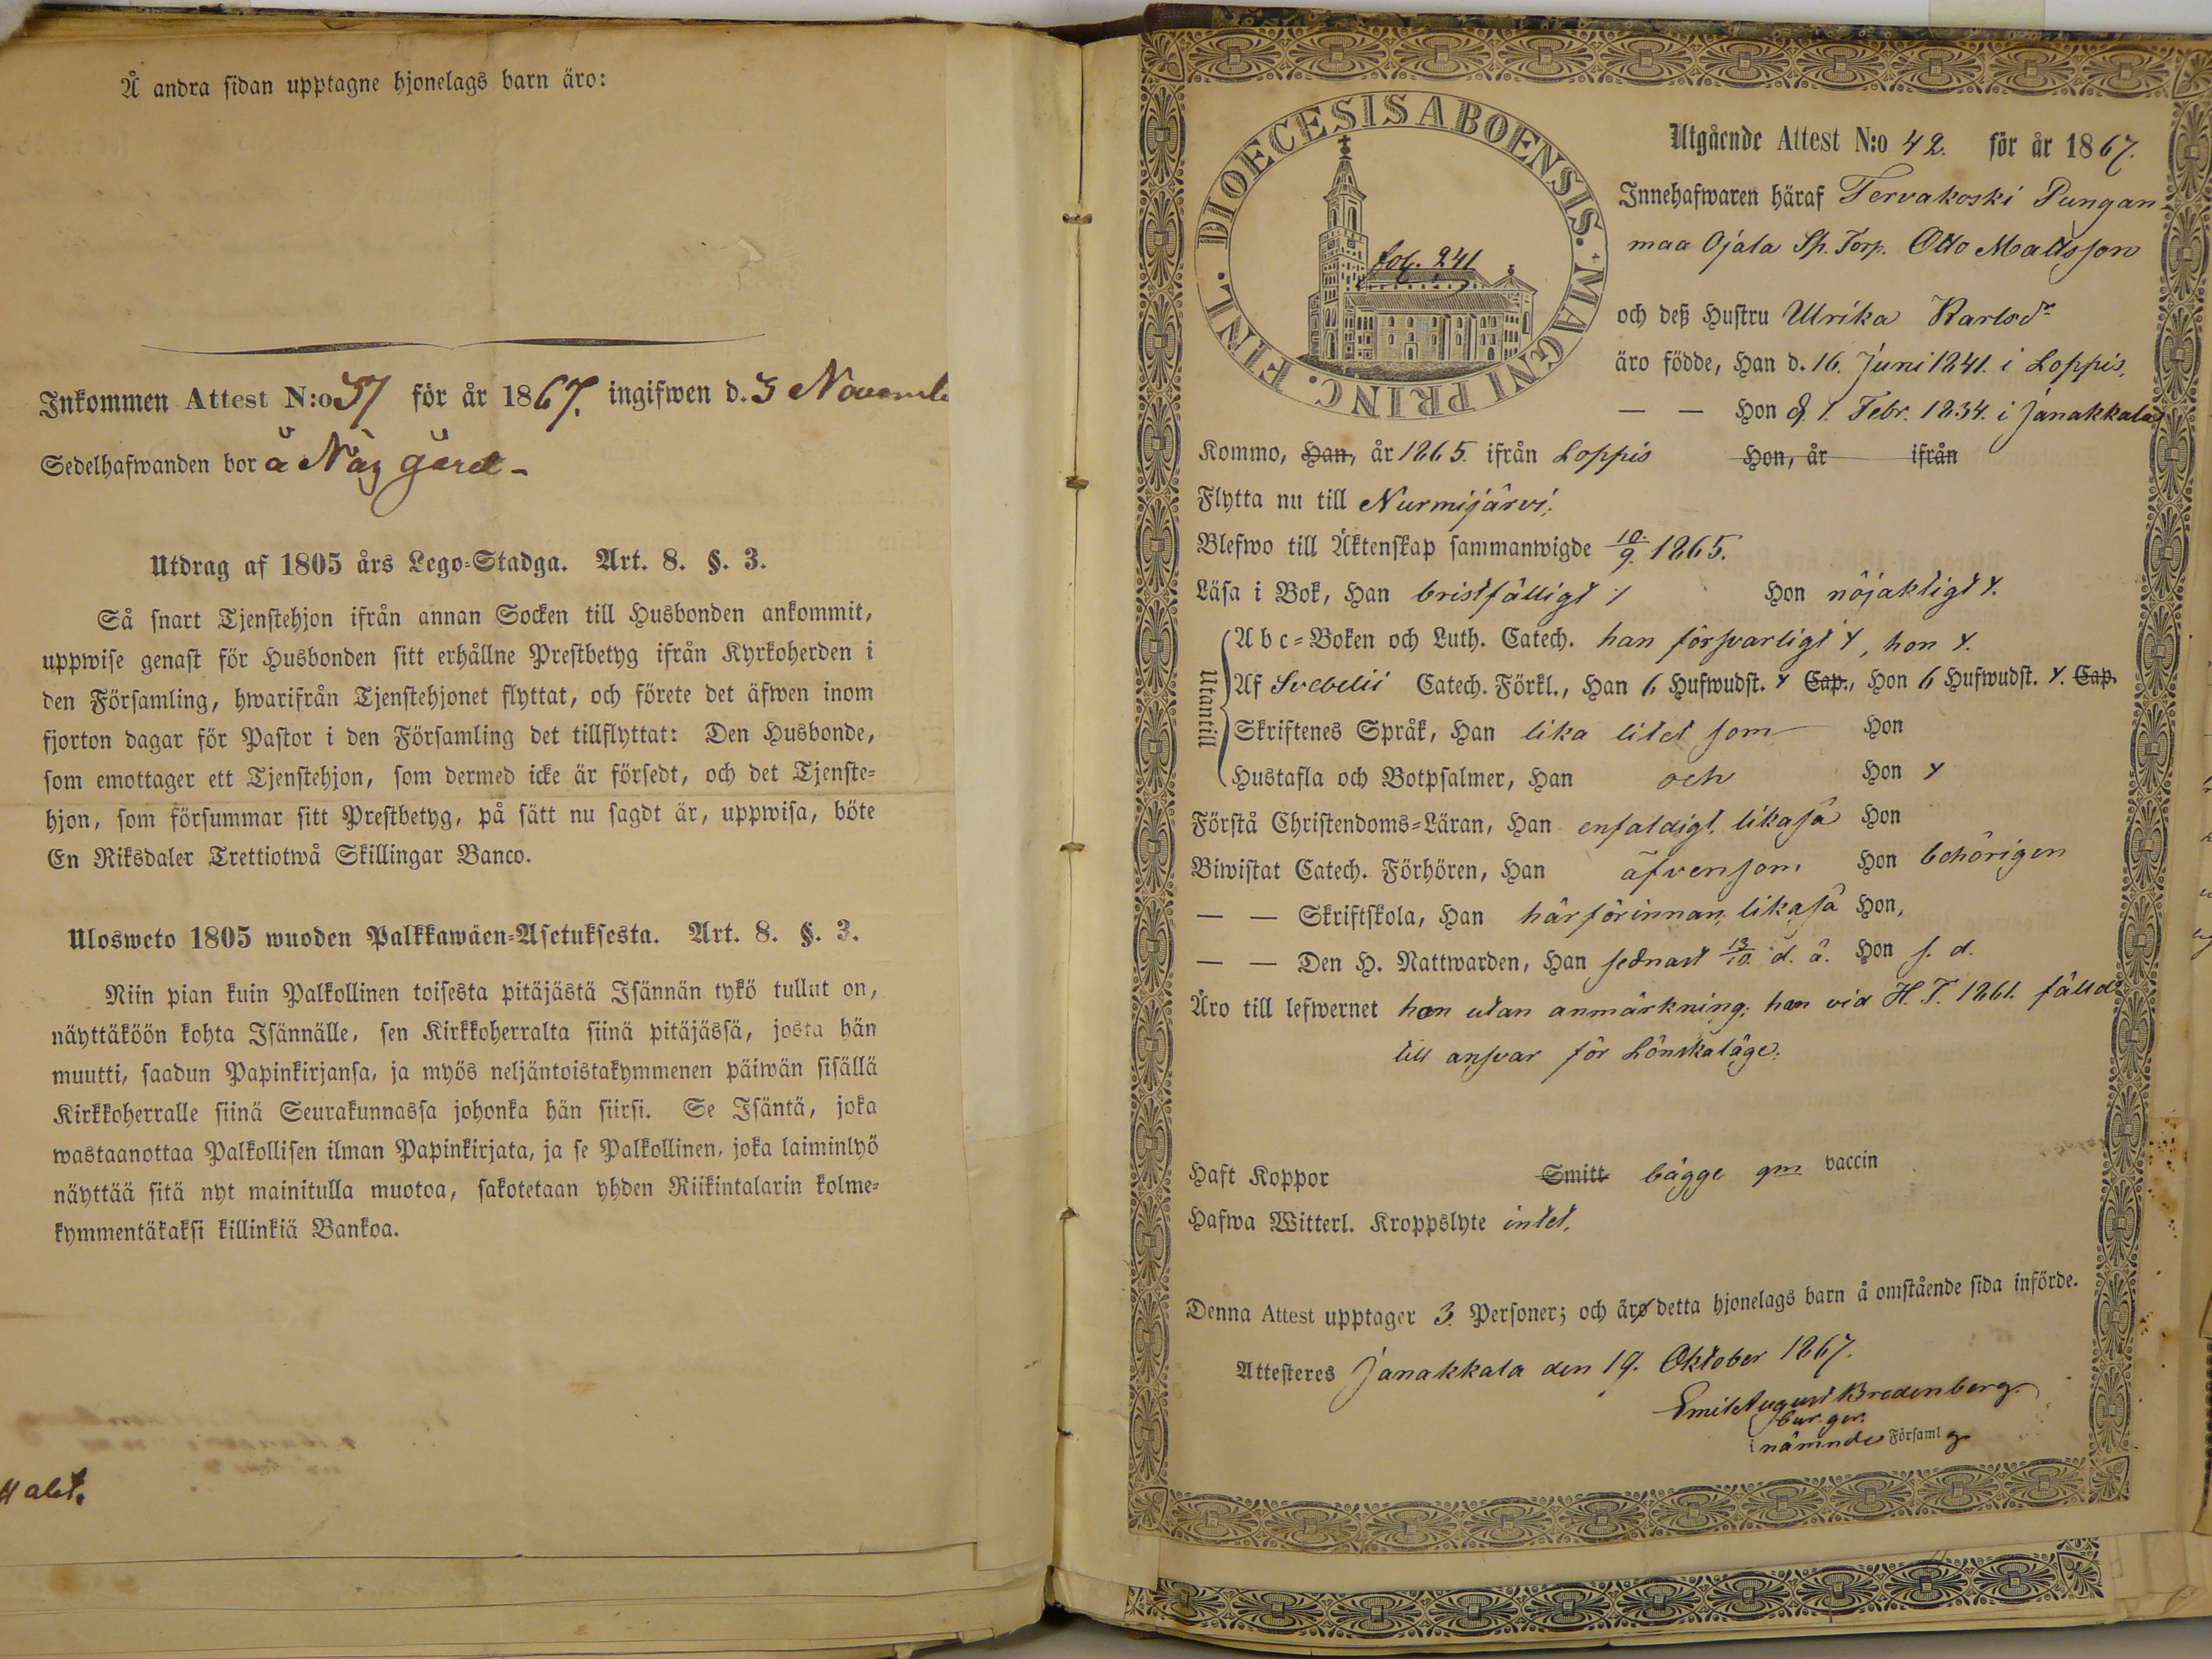 Å andra sidan upptagne hjonelags barn äro:
Inkommen Attest N:o 37 för år 1867. ingifwen d. 3 Novemb
Sedelhafwanden bor å Näs gård -
Utdrag af 1805 års Lego-Stadga. Art. 8. §. 3.
Så snart Tjenstehjon ifrån annan Socken till Husbonden ankommit,
uppwise genast för Husbonden sitt erhållne Prestbetyg ifrån Kyrkoherden i
den Församling, hwarifrån Tjenstehjonet flyttat, och förete det äfwen inom
fjorton dagar för Pastor i den Församling det tillflyttat: Den Husbonde,
som emottager ett Tjenstehjon, som dermed icke är försedt, och det Tjenste-
hjon, som försummar sitt Prestbetyg, på sätt nu sagdt är, uppwisa, böte
En Riksdaler Trettiotwå Skillingar Banco.
Ulosweto 1805 wuoden Palkkawäen-Asetuksesta. Art. 8. §. 3.
Niin pian kuin Palkollinen toisesta pitäjästä Isännän tykö tullut on,
näyttäköön kohta Isännälle, sen Kirkkoherralta siinä pitäjässä, josta hän
muutti, saadun Papinkirjansa, ja myös neljäntoistakymmenen päiwän sisällä
Kirkkoherralle siinä Seurakunnassa johonka hän siirsi. Se Isäntä, joka
wastaanottaa Palkollisen ilman Papinkirjata, ja se Palkollinen, joka laiminlyö
näyttää sitä nyt mainitulla muotoa, sakotetaan yhden Riikintalarin kolme-
kymmentäkaksi killinkiä Bankoa.
DIOECESIS ABOENSIS. MAGNI PRINC. FINL.
fol. 241
Utgående Attest N:o 42. för år 1867.
Innehafwaren häraf Tervakoski Pungan
maa Ojala Sp. Torp. Otto Mattsson
och deß Hustru Ulrika Karlsdr
äro födde, Han d. 16. Juni 1841. i Loppis,
— — Hon d. 1. Febr. 1834. i Janakkala
Kommo, Han, år 1865. ifrån Loppis Hon, år ifrån
Flytta nu till Nurmijärvi.
Blefwo till Äktenskap sammanwigde 10/9. 1865.
Läsa i Bok, Han bristfälligt / Hon nöjaktigt x.
Utantill
Abc-Boken och Luth. Catech. han försvarligt x, hon x.
Af Svebelii Catech. Förkl., Han 6 Hufwudst. x Cap., Hon 6 Hufwudst. x. Cap.
Skriftenes Språk, Han lika litet som Hon
Hustafla och Botpsalmer, Han och Hon x
Förstå Christendoms-Läran, Han enfaldigt, likaså Hon
Biwistat Catech. Förhören, Han äfvensom Hon behörigen
— — Skriftskola, Han härförinnan, likaså Hon,
— — Den H. Nattwarden, Han sednast 13/10. d. å. Hon s. d.
Äro till lefwernet hon utan anmärkning; han vid H. T. 1861. fälld
till ansvar för Lönskaläge.
Haft Koppor Smitt bägge gm vaccin
Hafwa Witterl. Kroppslyte intet.
Denna Attest upptager 3. Personer; och äro detta hjonelags barn å omstående sida införde.
Attesteres Janakkala den 19. Oktober 1867.
Emil August Bredenberg
i nämnde Församlg